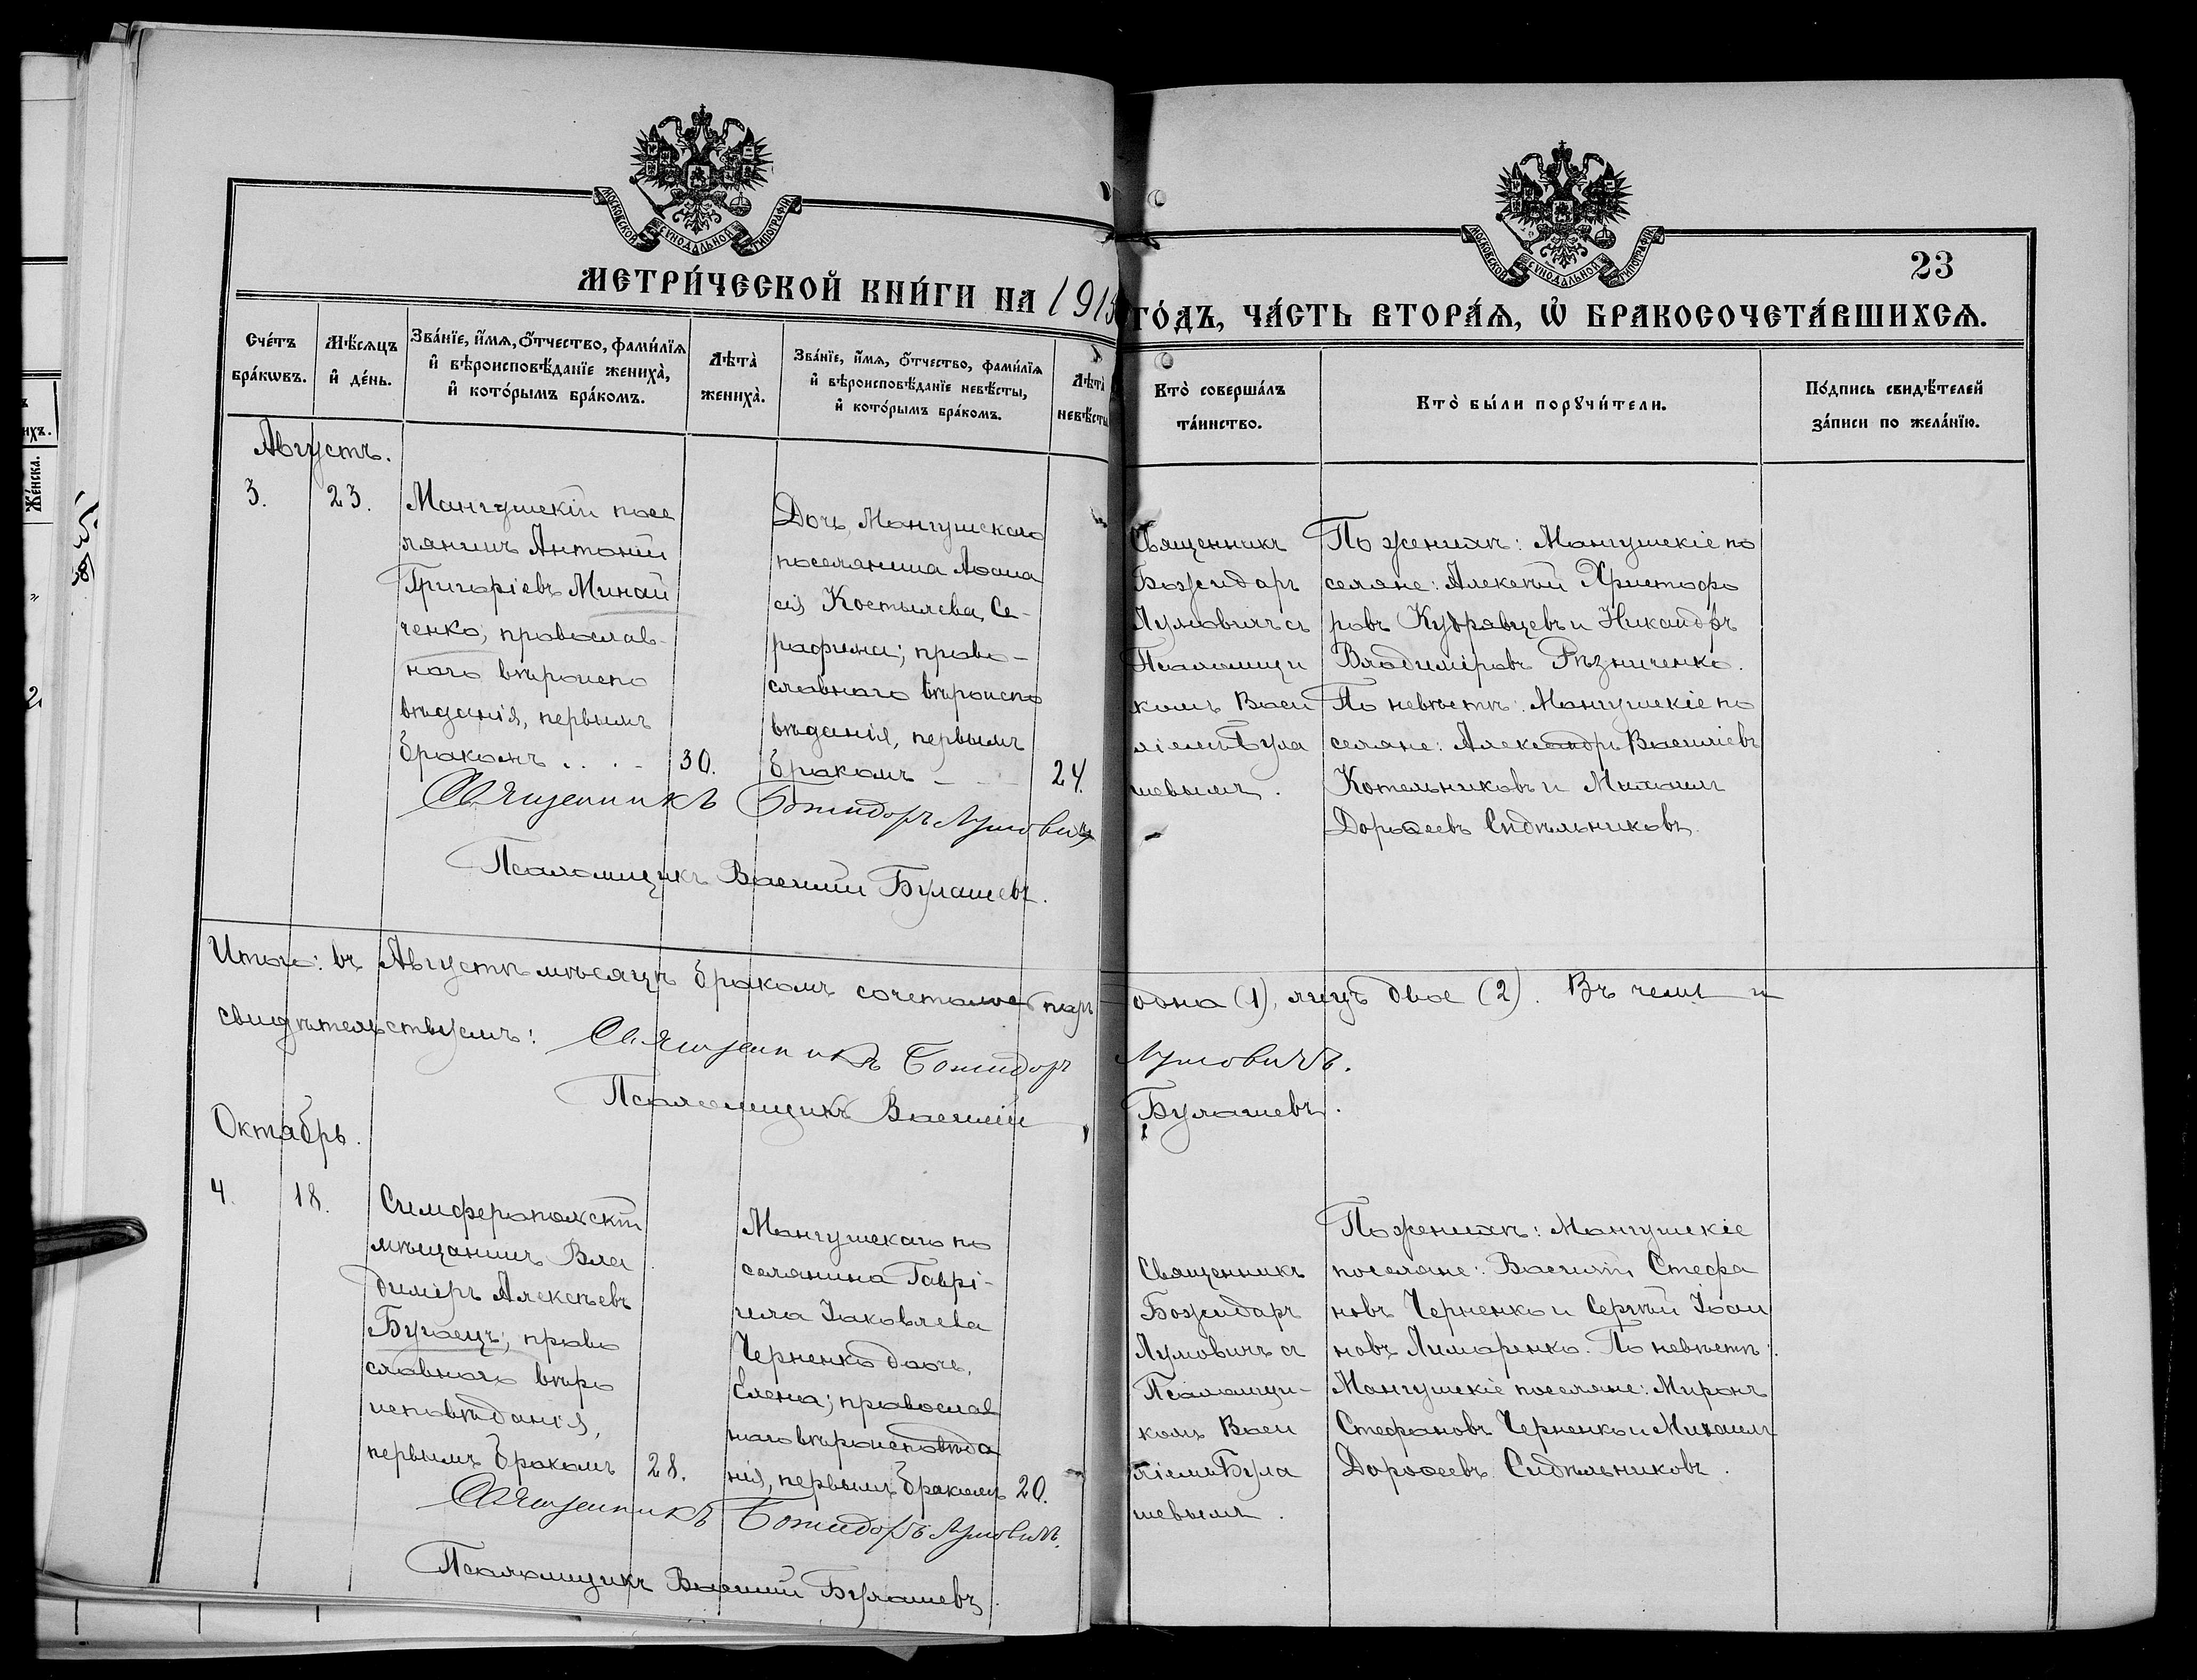 МОСКОВСКОЙ СѴНОДАЛЬНОЙ ТИПОГРАФІИ
МОСКОВСКОЙ СѴНОДАЛЬНОЙ ТИПОГРАФІИ
23
МЕТРИ́ЧЕСКОЙ КНИ́ГИ НА 1915 ГО́ДЪ, ЧА́СТЬ ВТОРА́Ѧ, Ѡ҆ БРАКОСОЧЕТА́ВШИХСѦ.
Сче́тъ
бра́кѡвъ.
Мѣ́сяцъ
и҆ де́нь.
Зва́нїе, и҆́мя, ѻ҆́тчество, фами́лїя
и҆ вѣроисповѣ́данїе жениха̀,
и҆ кото́рымъ бра́комъ.
Лѣта̀
жениха̀.
Зва́нїе, и҆́мя, ѻ҆́тчество, фами́лїя
и҆ вѣроисповѣ́данїе невѣ́сты,
и҆ кото́рымъ бра́комъ.
Лѣта̀
невѣ́сты
Кто̀ соверша́лъ
та́инство.
Кто̀ бы́ли порꙋчи́тели.
По́дпись свидѣ́телей
за́писи по жела́нїю.
Августъ.
3.
23.
Мангушскій посе
лянинъ Антоній
Григоріевъ Минай
ченко, православ-
наго вѣроиспо
вѣданія, первымъ
бракомъ . . . -
30.
Дочь Мангушскаго
поселянина Аѳана
сія Костылева, Се-
рафима; право-
славнаго вѣроиспо
вѣданія, первымъ
бракомъ - -
24.
Священникъ
Божидаръ
Лумовичъ съ
Псаломщи
комъ Васи
ліемъ Була
шевымъ.
По женихѣ: Мангушскіе по
селяне: Алексѣй Христофо
ровъ Кудрявцевъ и Никандръ
Владиміровъ Рѣзниченко.
По невѣстѣ: Мангушскіе по
селяне: Александръ Василіевъ
Котельниковъ и Михаилъ
Дороѳеевъ Сидѣльниковъ.
Священникъ Божидаръ Лумовичъ
Псаломщикъ Василій Булашевъ.
Итого: въ Августѣ мѣсяцѣ бракомъ сочеталось паръ одна (1), лицъ двое (2). Въ чемъ и
свидѣтельствуемъ: Священникъ Божидаръ Лумовичъ.
Псаломщикъ Василій Булашевъ.
Октябрь.
4.
18.
Симферопольскій
мѣщанинъ Вла
димiръ Алексѣевъ
Бугаецъ; право
славнаго вѣро
исповѣданія,
первымъ бракомъ
28.
Мангушскаго по
селянина Гаврі-
ила Іаковлева
Черненко дочь,
Елена; православ
наго вѣроисповѣда
нія, первымъ бракомъ
20.
Священникъ
Божидаръ
Лумовичъ съ
Псаломщи-
комъ Васи
ліемъ Була
шевымъ.
По женихѣ: Мангушскіе
поселяне: Василій Стефа
новъ Черненко и Сергѣй Іоан
новъ Лимаренко. По невѣстѣ:
Мангушскіе поселяне: Миронъ
Стефановъ Черненко и Михаилъ
Дороѳеевъ Сидѣльниковъ.
Священникъ Божидаръ Лумовичъ.
Псаломщикъ Василій Булашевъ.